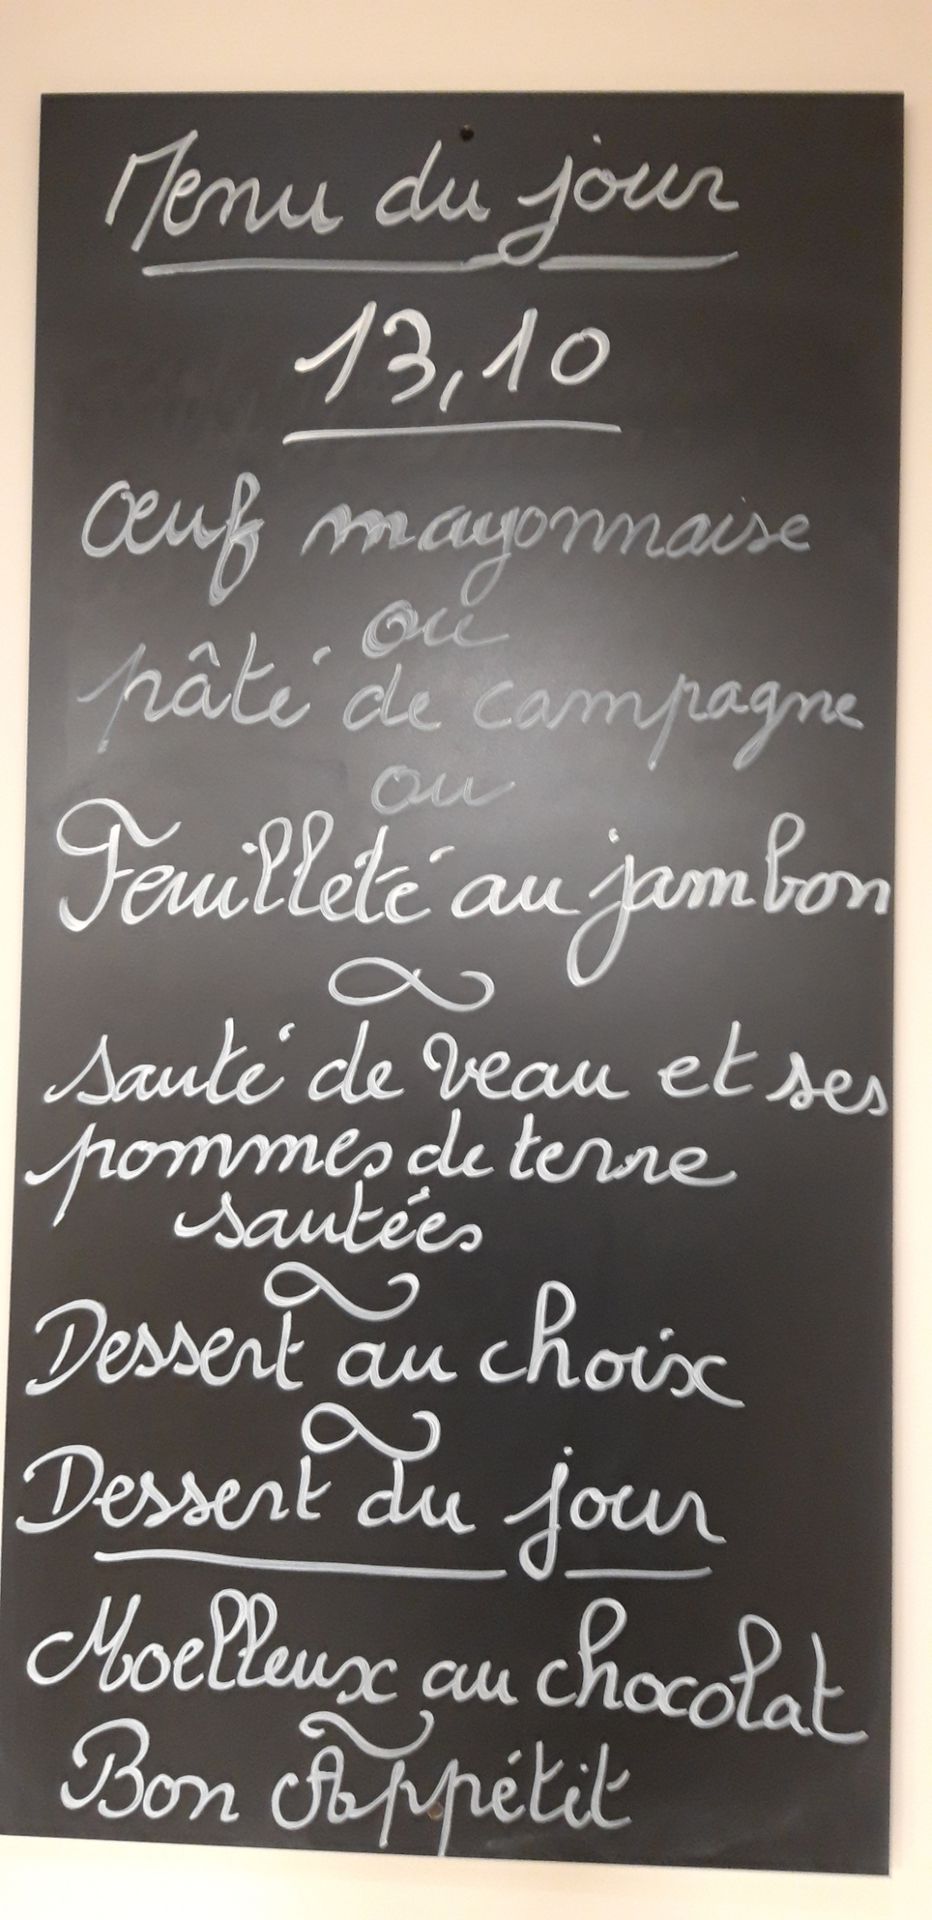 Menu du jour
13,10
Œuf mayonnaise
ou
pâté de campagne
ou
Feuilleté au jambon
sauté de veau et ses
pommes de terre
sautées
Dessert au choix
Dessert du jour
Moelleux au chocolat
Bon Appétit